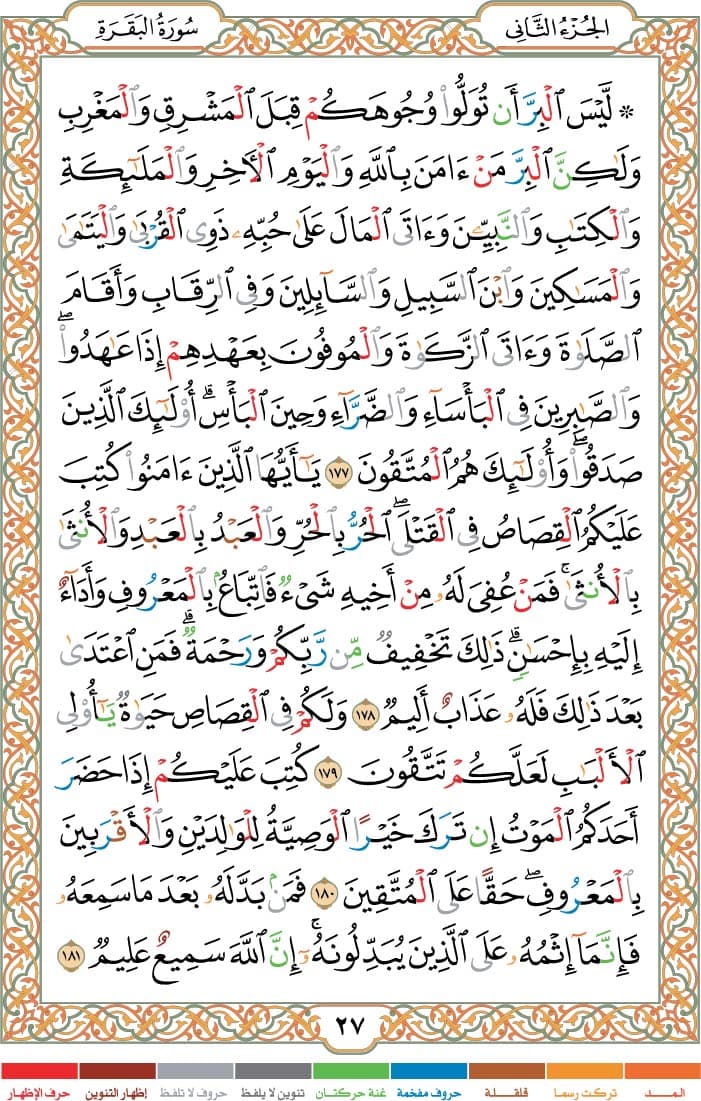 الجُزْءُ الثَّانِى
سُورَةُ البَقَرَةِ
* لَّيْسَ ٱلْبِرَّ أَن تُوَلُّوا۟ وُجُوهَكُمْ قِبَلَ ٱلْمَشْرِقِ وَٱلْمَغْرِبِ
وَلَـٰكِنَّ ٱلْبِرَّ مَنْ ءَامَنَ بِٱللَّهِ وَٱلْيَوْمِ ٱلْـَٔاخِرِ وَٱلْمَلَـٰٓئِكَةِ
وَٱلْكِتَـٰبِ وَٱلنَّبِيِّـۧنَ وَءَاتَى ٱلْمَالَ عَلَىٰ حُبِّهِۦ ذَوِى ٱلْقُرْبَىٰ وَٱلْيَتَـٰمَىٰ
وَٱلْمَسَـٰكِينَ وَٱبْنَ ٱلسَّبِيلِ وَٱلسَّآئِلِينَ وَفِى ٱلرِّقَابِ وَأَقَامَ
ٱلصَّلَوٰةَ وَءَاتَى ٱلزَّكَوٰةَ وَٱلْمُوفُونَ بِعَهْدِهِمْ إِذَا عَـٰهَدُوا۟ ۖ
وَٱلصَّـٰبِرِينَ فِى ٱلْبَأْسَآءِ وَٱلضَّرَّآءِ وَحِينَ ٱلْبَأْسِ ۗ أُو۟لَـٰٓئِكَ ٱلَّذِينَ
صَدَقُوا۟ ۖ وَأُو۟لَـٰٓئِكَ هُمُ ٱلْمُتَّقُونَ ١٧٧ يَـٰٓأَيُّهَا ٱلَّذِينَ ءَامَنُوا۟ كُتِبَ
عَلَيْكُمُ ٱلْقِصَاصُ فِى ٱلْقَتْلَى ۖ ٱلْحُرُّ بِٱلْحُرِّ وَٱلْعَبْدُ بِٱلْعَبْدِ وَٱلْأُنثَىٰ
بِٱلْأُنثَىٰ ۚ فَمَنْ عُفِىَ لَهُۥ مِنْ أَخِيهِ شَىْءٌ فَٱتِّبَاعٌۢ بِٱلْمَعْرُوفِ وَأَدَآءٌ
إِلَيْهِ بِإِحْسَـٰنٍ ۗ ذَٰلِكَ تَخْفِيفٌ مِّن رَّبِّكُمْ وَرَحْمَةٌ ۗ فَمَنِ ٱعْتَدَىٰ
بَعْدَ ذَٰلِكَ فَلَهُۥ عَذَابٌ أَلِيمٌ ١٧٨ وَلَكُمْ فِى ٱلْقِصَاصِ حَيَوٰةٌ يَـٰٓأُو۟لِى
ٱلْأَلْبَـٰبِ لَعَلَّكُمْ تَتَّقُونَ ١٧٩ كُتِبَ عَلَيْكُمْ إِذَا حَضَرَ
أَحَدَكُمُ ٱلْمَوْتُ إِن تَرَكَ خَيْرًا ٱلْوَصِيَّةُ لِلْوَٰلِدَيْنِ وَٱلْأَقْرَبِينَ
بِٱلْمَعْرُوفِ ۖ حَقًّا عَلَى ٱلْمُتَّقِينَ ١٨٠ فَمَنۢ بَدَّلَهُۥ بَعْدَ مَا سَمِعَهُۥ
فَإِنَّمَآ إِثْمُهُۥ عَلَى ٱلَّذِينَ يُبَدِّلُونَهُۥٓ ۚ إِنَّ ٱللَّهَ سَمِيعٌ عَلِيمٌ ١٨١
٢٧
المـــد تركت رسما قلقـــلة حروف مفخمة غنة حركتان تنوين لا يلفظ حروف لا تلفظ إظهار التنوين حرف الإظهار